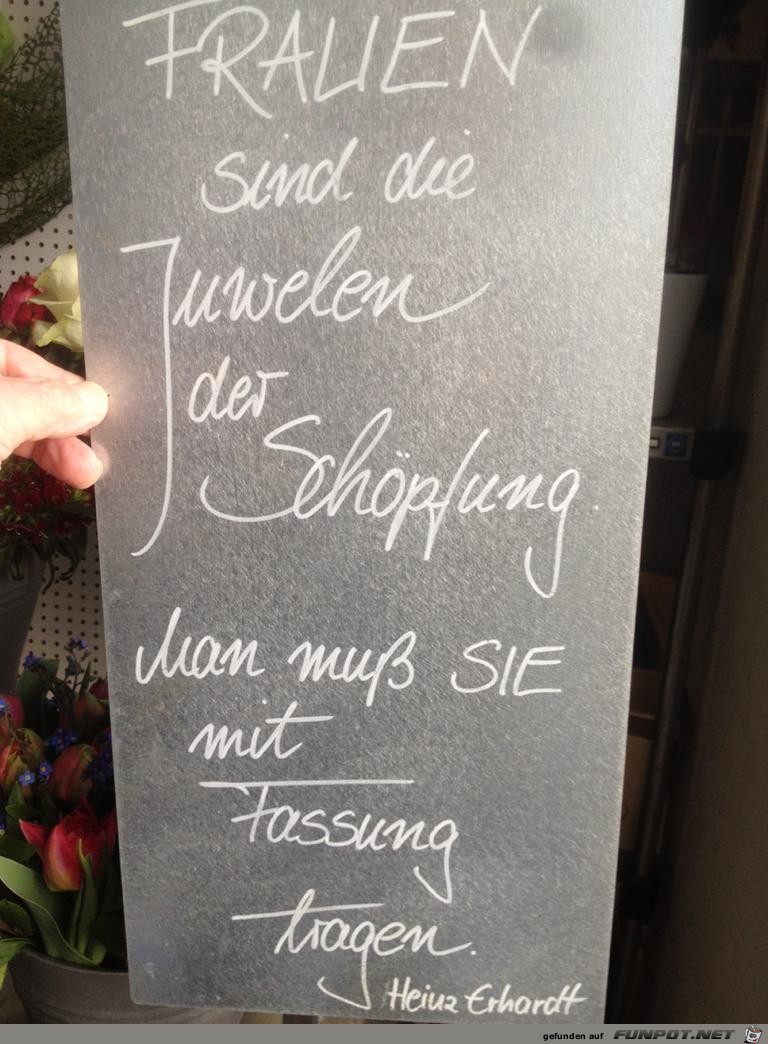 FRAUEN
sind die
Juwelen
der
Schöpfung.
Man muß SIE
mit
Fassung
tragen.
Heinz Erhardt
gefunden auf FUNPOT.NET